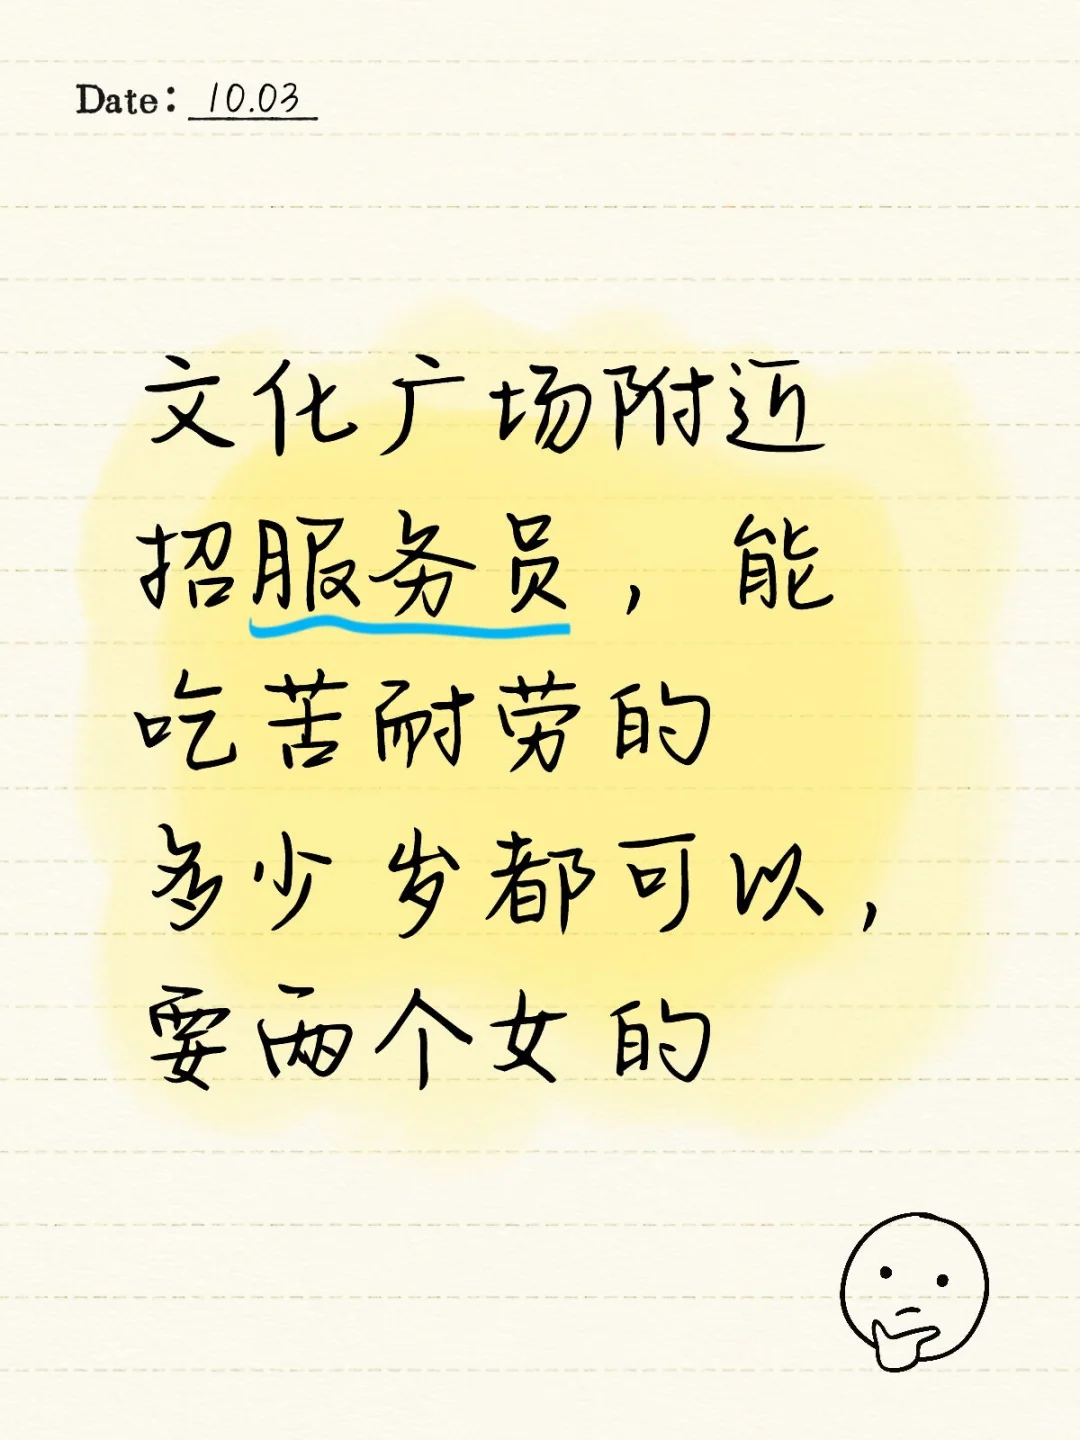 Date: 10.03
文化广场附近
招服务员，能
吃苦耐劳的
多少岁都可以，
要两个女的